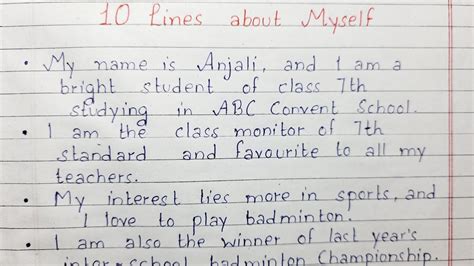 10 Lines about Myself
• My name is Anjali, and I am a
bright student of class 7th
studying in ABC Convent School.
• I am the class monitor of 7th
standard and favourite to all my
teachers.
• My interest lies more in sports, and
I love to play badminton.
• I am also the winner of last year's
inter-school badminton Championship.